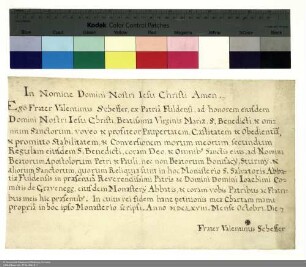 Kodak Color Control Patches
In Nomine Domini Nostri Iesu Christi Amen.
Ego Frater Valentinus Scheffer, ex Patria Fuldensi, ad honorem eiusdem
Domini Nostri Iesu Christi, Beatissimæ Virginis Mariæ, S. Benedicti, & om-
nium Sanctorum, voveo & profiteor Paupertatem, Castitatem & Obedientiã,
& promitto Stabilitatem, & Conversionem morum meorum, secundum
Regulam eiusdem S. Benedicti, coram Deo & omnibus Sanctis eius, ad Normã
Beatorum Apostolorum Petri & Pauli, nec non Beatorum Bonifacij, Sturmij, &
aliorum Sanctorum, quorum Reliquiæ sunt in hoc Monasterio S. Salvatoris Abba-
tiæ Fuldensis in præsentia Reverendissimi Patris & Domini Domini Ioachimi Co-
mitis de Gravenegg, eiusdem Monasterij Abbatis, & coram vobis Patribus & Fratri-
bus meis hic præsentibus. In cuius rei fidem hanc petitionis meæ Chartam manu
propria in hoc ipso Monasterio scripsi, Anno MDCLXVIII. Mense Octobri Die 7
Frater Valentinus Scheffer